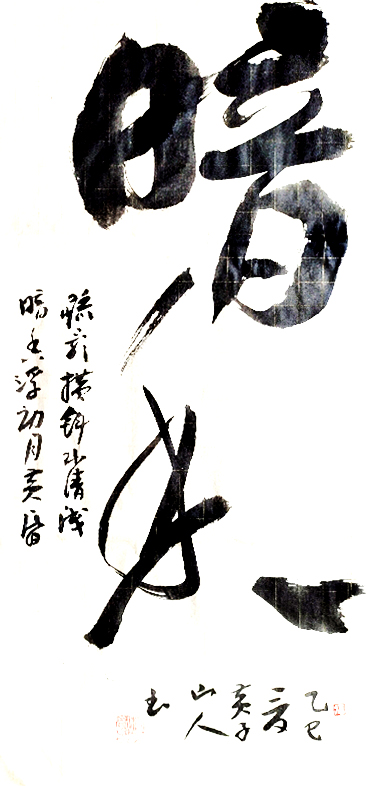 暗香
疏影横斜水清浅
暗香浮动月黄昏
乙巳
夏
黄子
山人
书